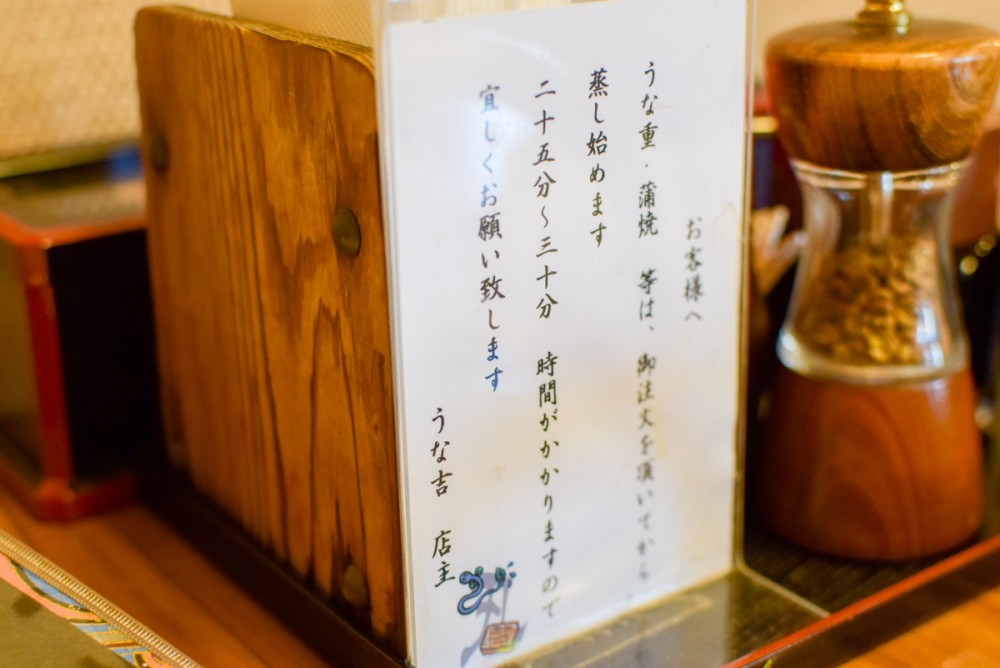 お客様へ
うな重・蒲焼　等は、御注文を頂いてから
蒸し始めます
二十五分～三十分　時間がかかりますので
宜しくお願い致します
うな吉　店主